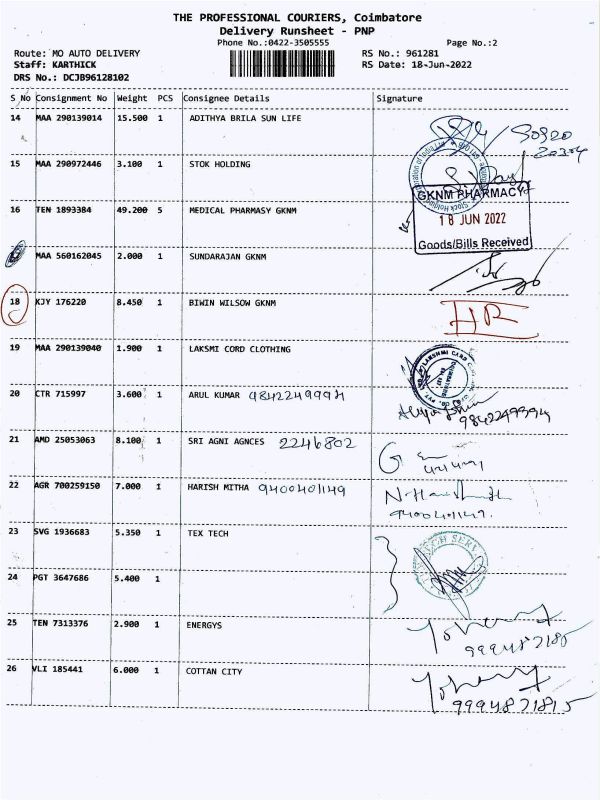 THE PROFESSIONAL COURIERS, Coimbatore
Delivery Runsheet - PNP
Phone No.:0422-3505555
Page No.:2
Route: MO AUTO DELIVERY
RS No.: 961281
Staff: KARTHICK
RS Date: 18-Jun-2022
DRS No.: DCJB96128102
S No Consignment No Weight PCS Consignee Details Signature
14 MAA 290139014 15.500 1 ADITHYA BRILA SUN LIFE
15 MAA 290972446 3.100 1 STOK HOLDING
GKNM PHARMACY
16 TEN 1893384 49.200 5 MEDICAL PHARMASY GKNM
18 JUN 2022
Goods/Bills Received
MAA 560162045 2.000 1 SUNDARAJAN GKNM
18 KJY 176220 8.450 1 BIWIN WILSOW GKNM HR
19 MAA 290139040 1.900 1 LAKSMI CORD CLOTHING
20 CTR 715997 3.600 1 ARUL KUMAR 9842249994
9842249994
21 AMD 25053063 8.100 1 SRI AGNI AGNCES 2246802
22 AGR 700259150 7.000 1 HARISH MITHA 9400401149
9400401149.
23 SVG 1936683 5.350 1 TEX TECH
24 PGT 3647686 5.400 1
25 TEN 7313376 2.900 1 ENERGYS
26 VLI 185441 6.000 1 COTTAN CITY
9994871815